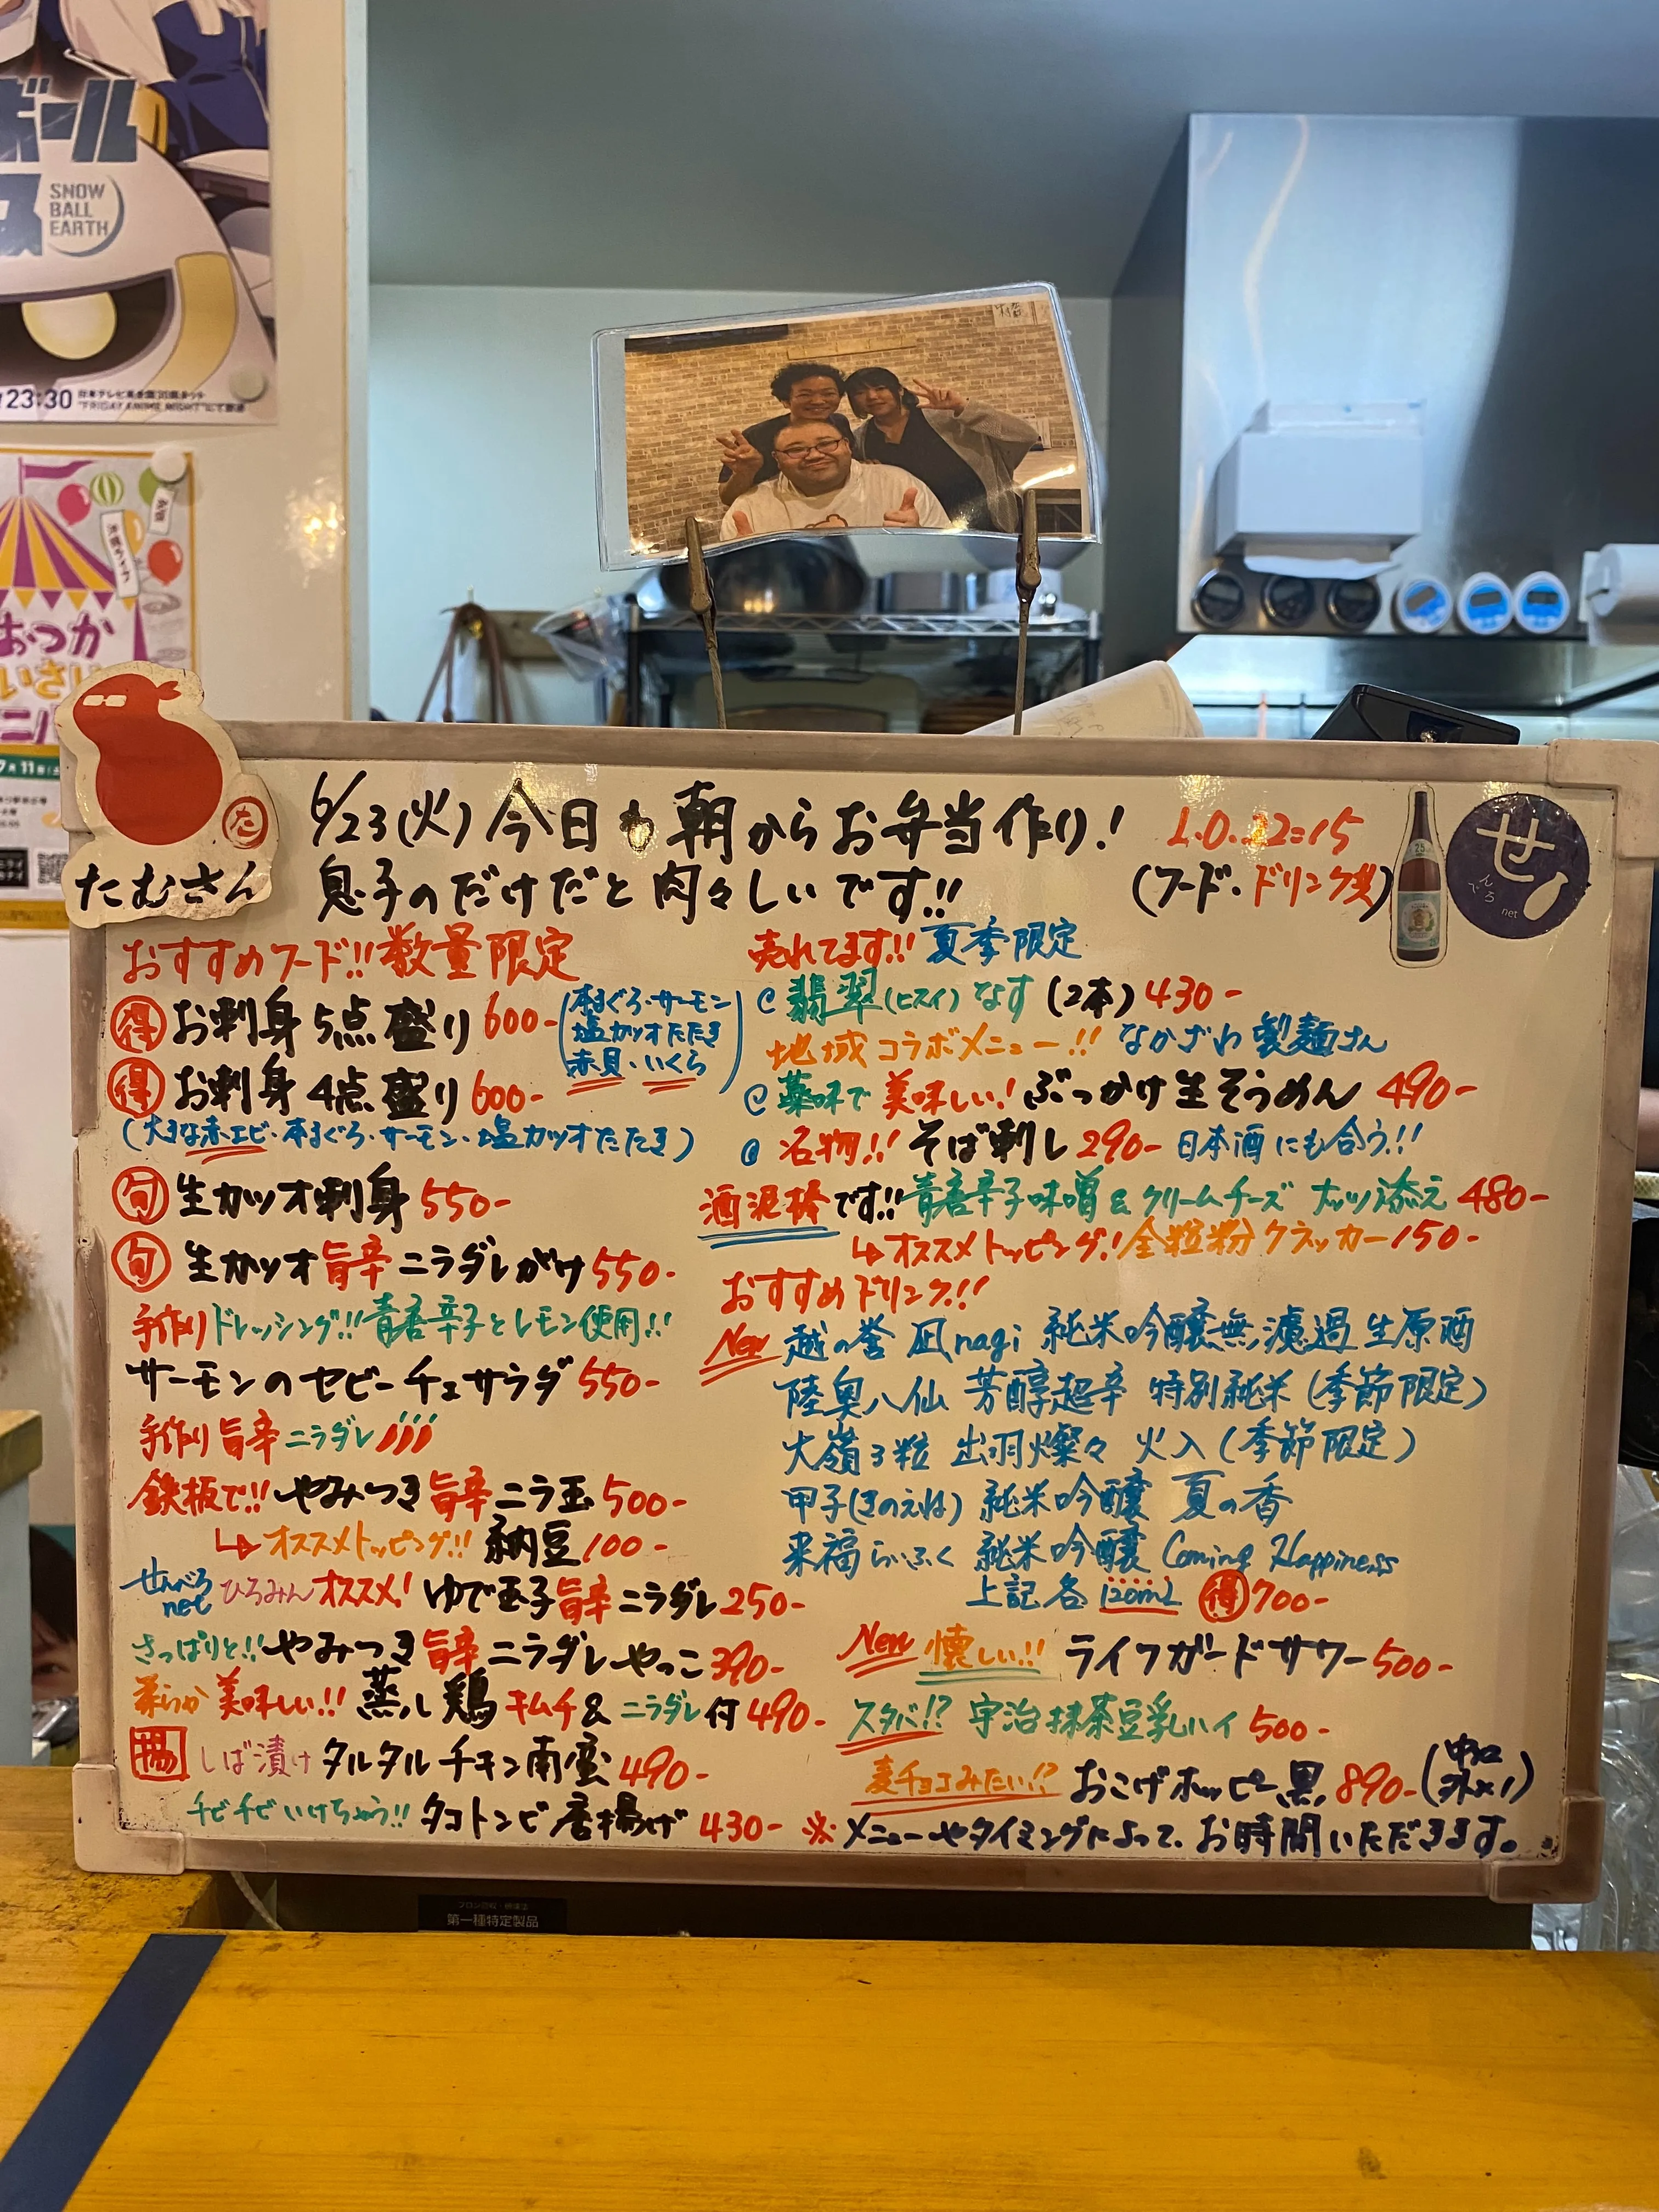 ボール
SNOW
BALL
EARTH
23:30
"FRIDAY ANIME NIGHT"にて放送
おつか
いさい
たむさん
た
6/23(火)今日も朝からお弁当作り!
息子のだけだと肉々しいです!!
L.O.22:15
(フード・ドリンク共)
せ
んべろ
net
おすすめフード!!数量限定
得 お刺身5点盛り600-
(本まぐろ・サーモン
塩カツオたたき
赤貝・いくら)
得 お刺身4点盛り600-
(大きな赤エビ・本まぐろ・サーモン・塩カツオたたき)
旬 生カツオ刺身550-
旬 生カツオ旨辛ニラダレがけ550-
手作りドレッシング!!青唐辛子とレモン使用!!
サーモンのセビーチェサラダ550-
手作り旨辛ニラダレ
鉄板で!!やみつき旨辛ニラ玉500-
↳オススメトッピング!!納豆100-
せんべろnet ひろみんオススメ!ゆで玉子旨辛ニラダレ250-
さっぱりと!!やみつき旨辛ニラダレやっこ390-
柔らか美味しい!!蒸し鶏キムチ&ニラダレ付490-
揚 しば漬けタルタルチキン南蛮490-
チビチビいけちゃう!!タコトンビ唐揚げ430-
売れてます!!夏季限定
@翡翠(ヒスイ)なす(2本)430-
地域コラボメニュー!!なかざわ製麺さん
@薬味で美味しい!ぶっかけ生そうめん490-
@名物!!そば刺し290-日本酒にも合う!!
酒泥棒です!!青唐辛子味噌&クリームチーズ ナッツ添え480-
↳オススメトッピング!全粒粉クラッカー150-
おすすめドリンク!!
New 越の誉 凪nagi 純米吟醸無濾過生原酒
陸奥八仙 芳醇超辛 特別純米(季節限定)
大嶺3粒 出羽燦々 火入(季節限定)
甲子(きのえね)純米吟醸 夏の香
来福らいふく 純米吟醸 Coming Happiness
上記各120mL 得700-
New 懐しい!!ライフガードサワー500-
スタバ!?宇治抹茶豆乳ハイ500-
麦チョコみたい!?おこげホッピー黒890-(中×2
外×1)
※メニューやタイミングによって、お時間いただきます。
第一種特定製品